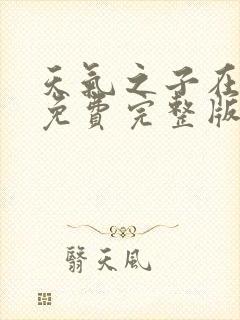 天氣之子在
免費完整版
翳天風